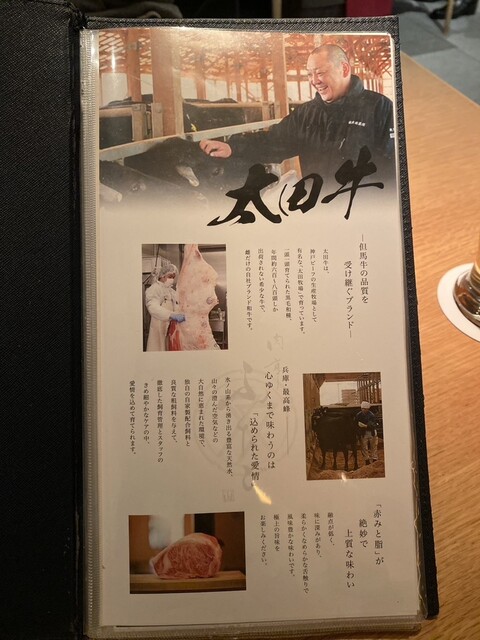 太田牛
―但馬牛の品質を
受け継ぐブランド―
太田牛は、
神戸ビーフの生産牧場として
有名な、「太田牧場」で育っています。
一頭一頭育てられた黒毛和種、
年間約六百~八百頭しか
出荷されない希少な牛で、
雌だけの自社ブランド和牛です。
兵庫・最高峰
心ゆくまで味わうのは
「込められた愛情」
氷ノ山系から湧き出る豊富な天然水、
山々の澄んだ空気などの
大自然に恵まれた環境で、
独自の自家製配合飼料と
良質な粗飼料を与えて、
徹底した飼育管理とスタッフの
きめ細やかなケアの中、
愛情を込めて育てられます。
「赤みと脂」が
絶妙で
上質な味わい
融点が低く、
味に深みがあり、
柔らかくなめらかな舌触りで
風味豊かな味わいです。
極上の旨味を
お楽しみください。